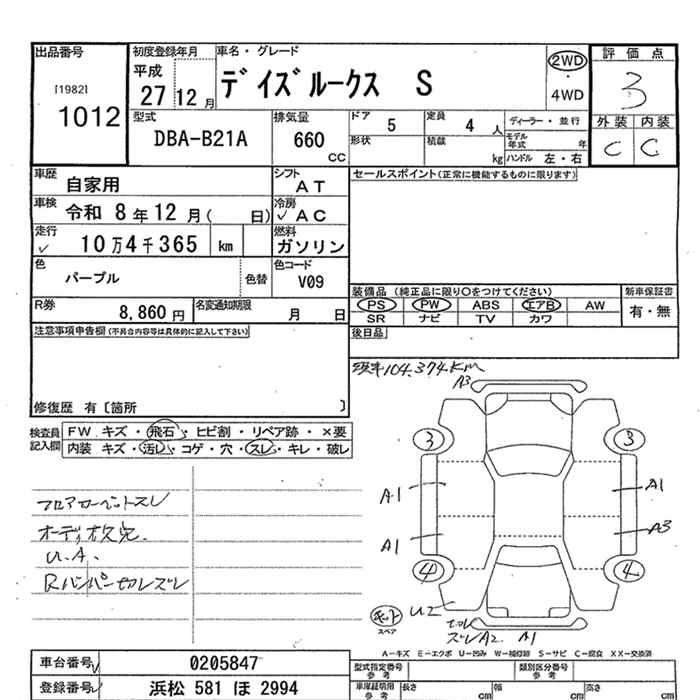 出品番号
[1982]
1012
初度登録年月
平成
27 12月
車名・グレード
デイズルークス S
2WD
・
4WD
評価点
3
外装 内装
C C
型式
DBA-B21A
排気量
660
CC
ドア
5
定員
4 人
ディーラー・並行
モデル年式 年
形状
積載
kg
ハンドル 左・右
車歴
自家用
シフト
AT
車検
令和 8年12月( 日)
冷房
✓AC
走行
✓ 10万4千365 km
燃料
ガソリン
色
パープル
色替
色コード
V09
R券
8,860円
名変通知期限
月 日
セールスポイント(正常に機能するものに限ります)
装備品 (純正品に限り○をつけてください)
新車保証書
PS PW ABS エアB AW
有・無
SR ナビ TV カワ
後日品
注意事項申告欄(不具合内容等は具体的に記入して下さい)
修復歴 有〔箇所 〕
検査員記入欄
FW キズ・飛石・ヒビ割・リペア跡・×要
内装 キズ・汚レ・コゲ・穴・スレ・キレ・破レ
104,374KM
A3
3 3
A1 A1
A1 A3
4 4
フロアカーペットスレ
オーディオ欠完.
U.A.
Rバンパー切レズレ
スペア
U2
ズレA2 A1
A-キズ E-エクボ U-凹み W-補修跡 S-サビ C-腐食 XX-交換済
車台番号
0205847
登録番号
浜松 581 ほ 2994
型式指定番号
参考
類別区分番号
参考
車庫証明用
参考
長さ cm
幅 cm
高さ cm